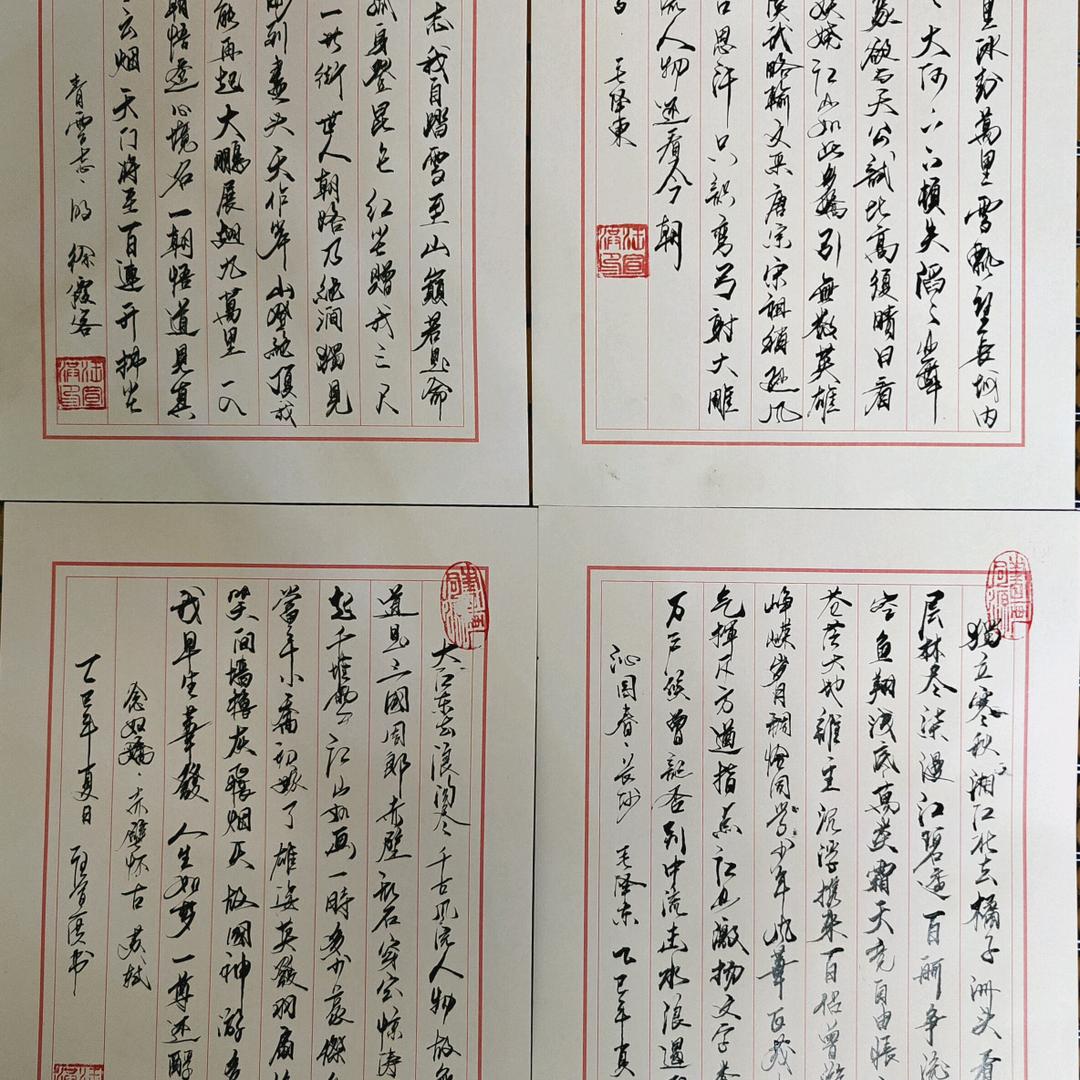 里冰封萬里雪飘望长城内
大河上下顿失滔滔山舞
象欲与天公試比高須晴日看
妖娆江山如此多嬌引無数英雄
漢武略輸文采唐宗宋祖稍逊风
思汗只識弯弓射大雕
流人物还看今朝
毛泽東
志我自踏雪至山巅若是俞
孤身登昆仑红尘赠我三尺
一世衔世人朝路乃绝涧獨見
到盡头天作岸山登绝顶我
能再起大鹏展翅九萬里一入
朝悟透心境名一朝悟道見真
云烟天门將至百運开拂尘
青雲志、明 徐霞客
獨立寒秋湘江北去橘子洲头看
层林尽染漫江碧透百舸争流
空鱼翔浅底萬类霜天竞自由怅
苍茫大地谁主沉浮携来百侣曾游
峥嵘岁月稠恰同学少年风華正茂
气挥斥方遒指点江山激扬文字粪
万户侯曾記否到中流击水浪遏
沁园春·长沙 毛泽东 乙巳年夏
大江东去浪淘尽千古风流人物故
道是三國周郎赤壁乱石穿空惊涛
起千堆雪江山如画一時多少豪傑
當年小喬初嫁了雄姿英發羽扇
笑间樯橹灰飛烟灭故國神游多
我早生華髮人生如梦一尊还酹
念奴嬌·赤壁怀古 苏轼
乙巳年夏日